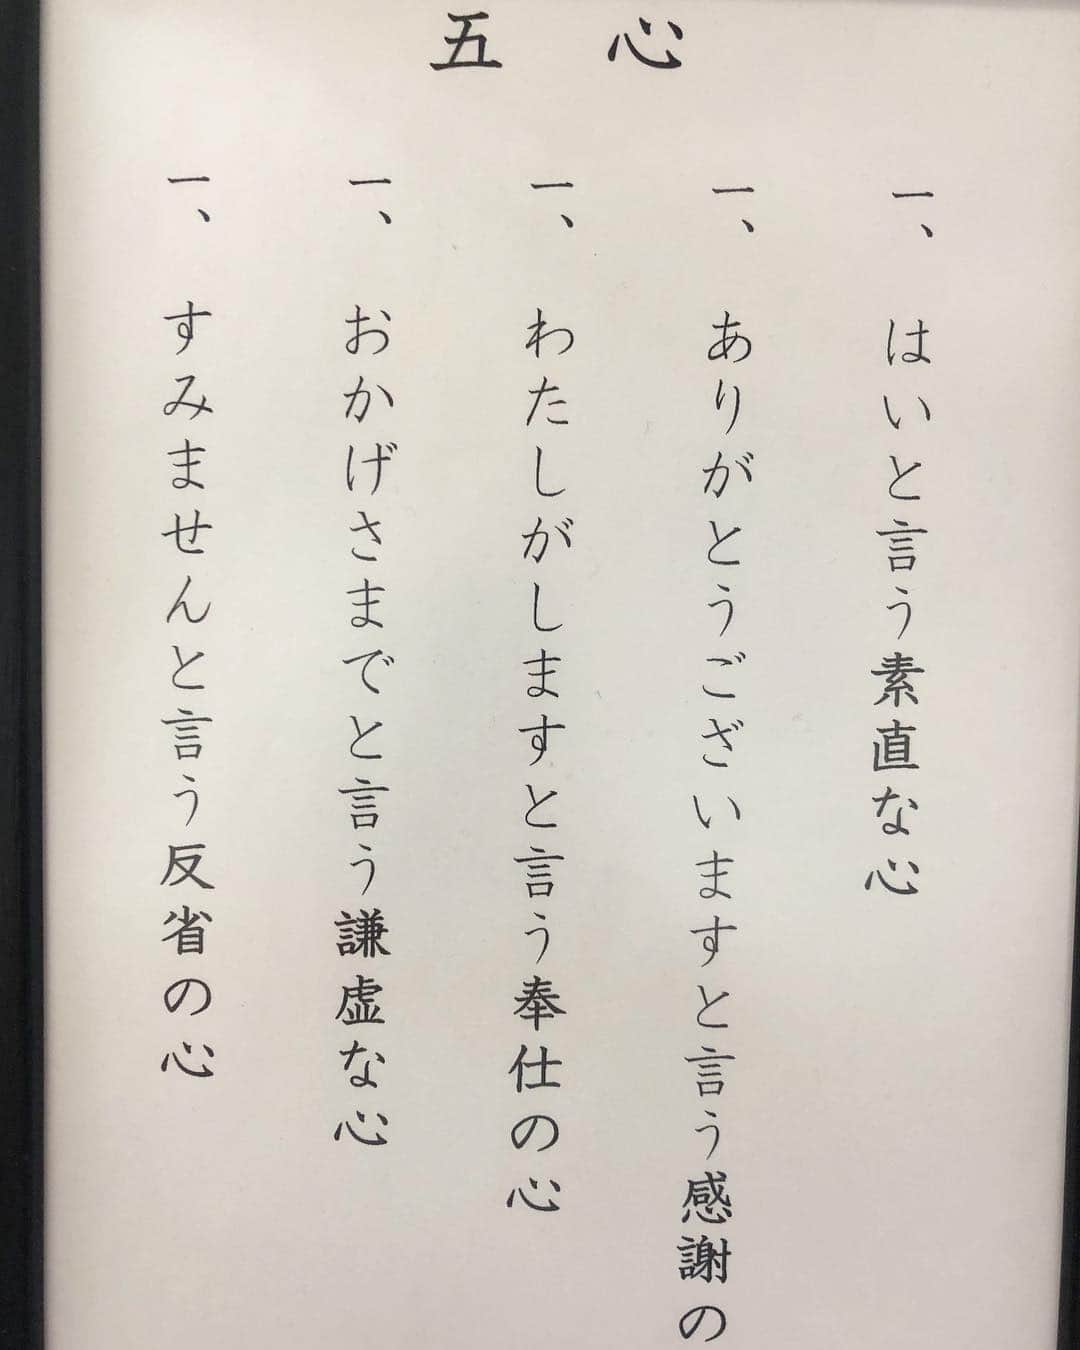 五 心
一、 はいと言う素直な心
一、 ありがとうございますと言う感謝の
一、 わたしがしますと言う奉仕の心
一、 おかげさまでと言う謙虚な心
一、 すみませんと言う反省の心